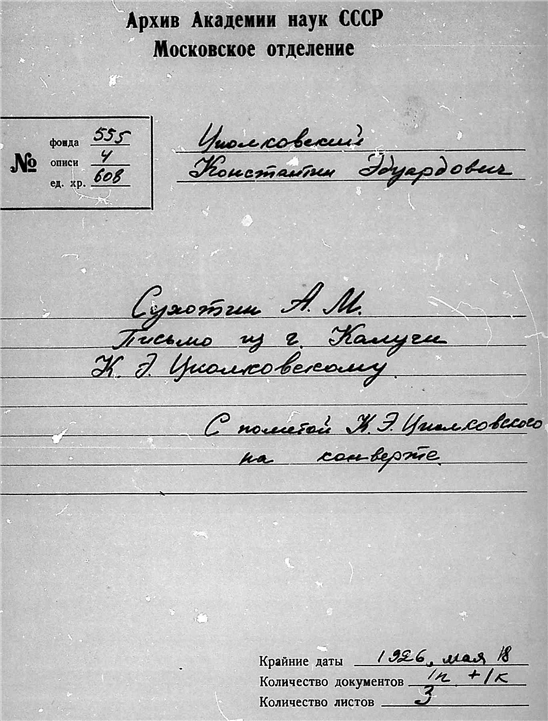 Архив Академии наук СССР
Московское отделение
№
фонда 555
описи 4
ед. хр. 608
Циолковский
Константин Эдуардович
Сухотин А. М.
Письмо из г. Калуги
К. Э. Циолковскому.
С пометой К. Э. Циолковского
на конверте.
Крайние даты 1926, мая 18
Количество документов 1п + 1к
Количество листов 3